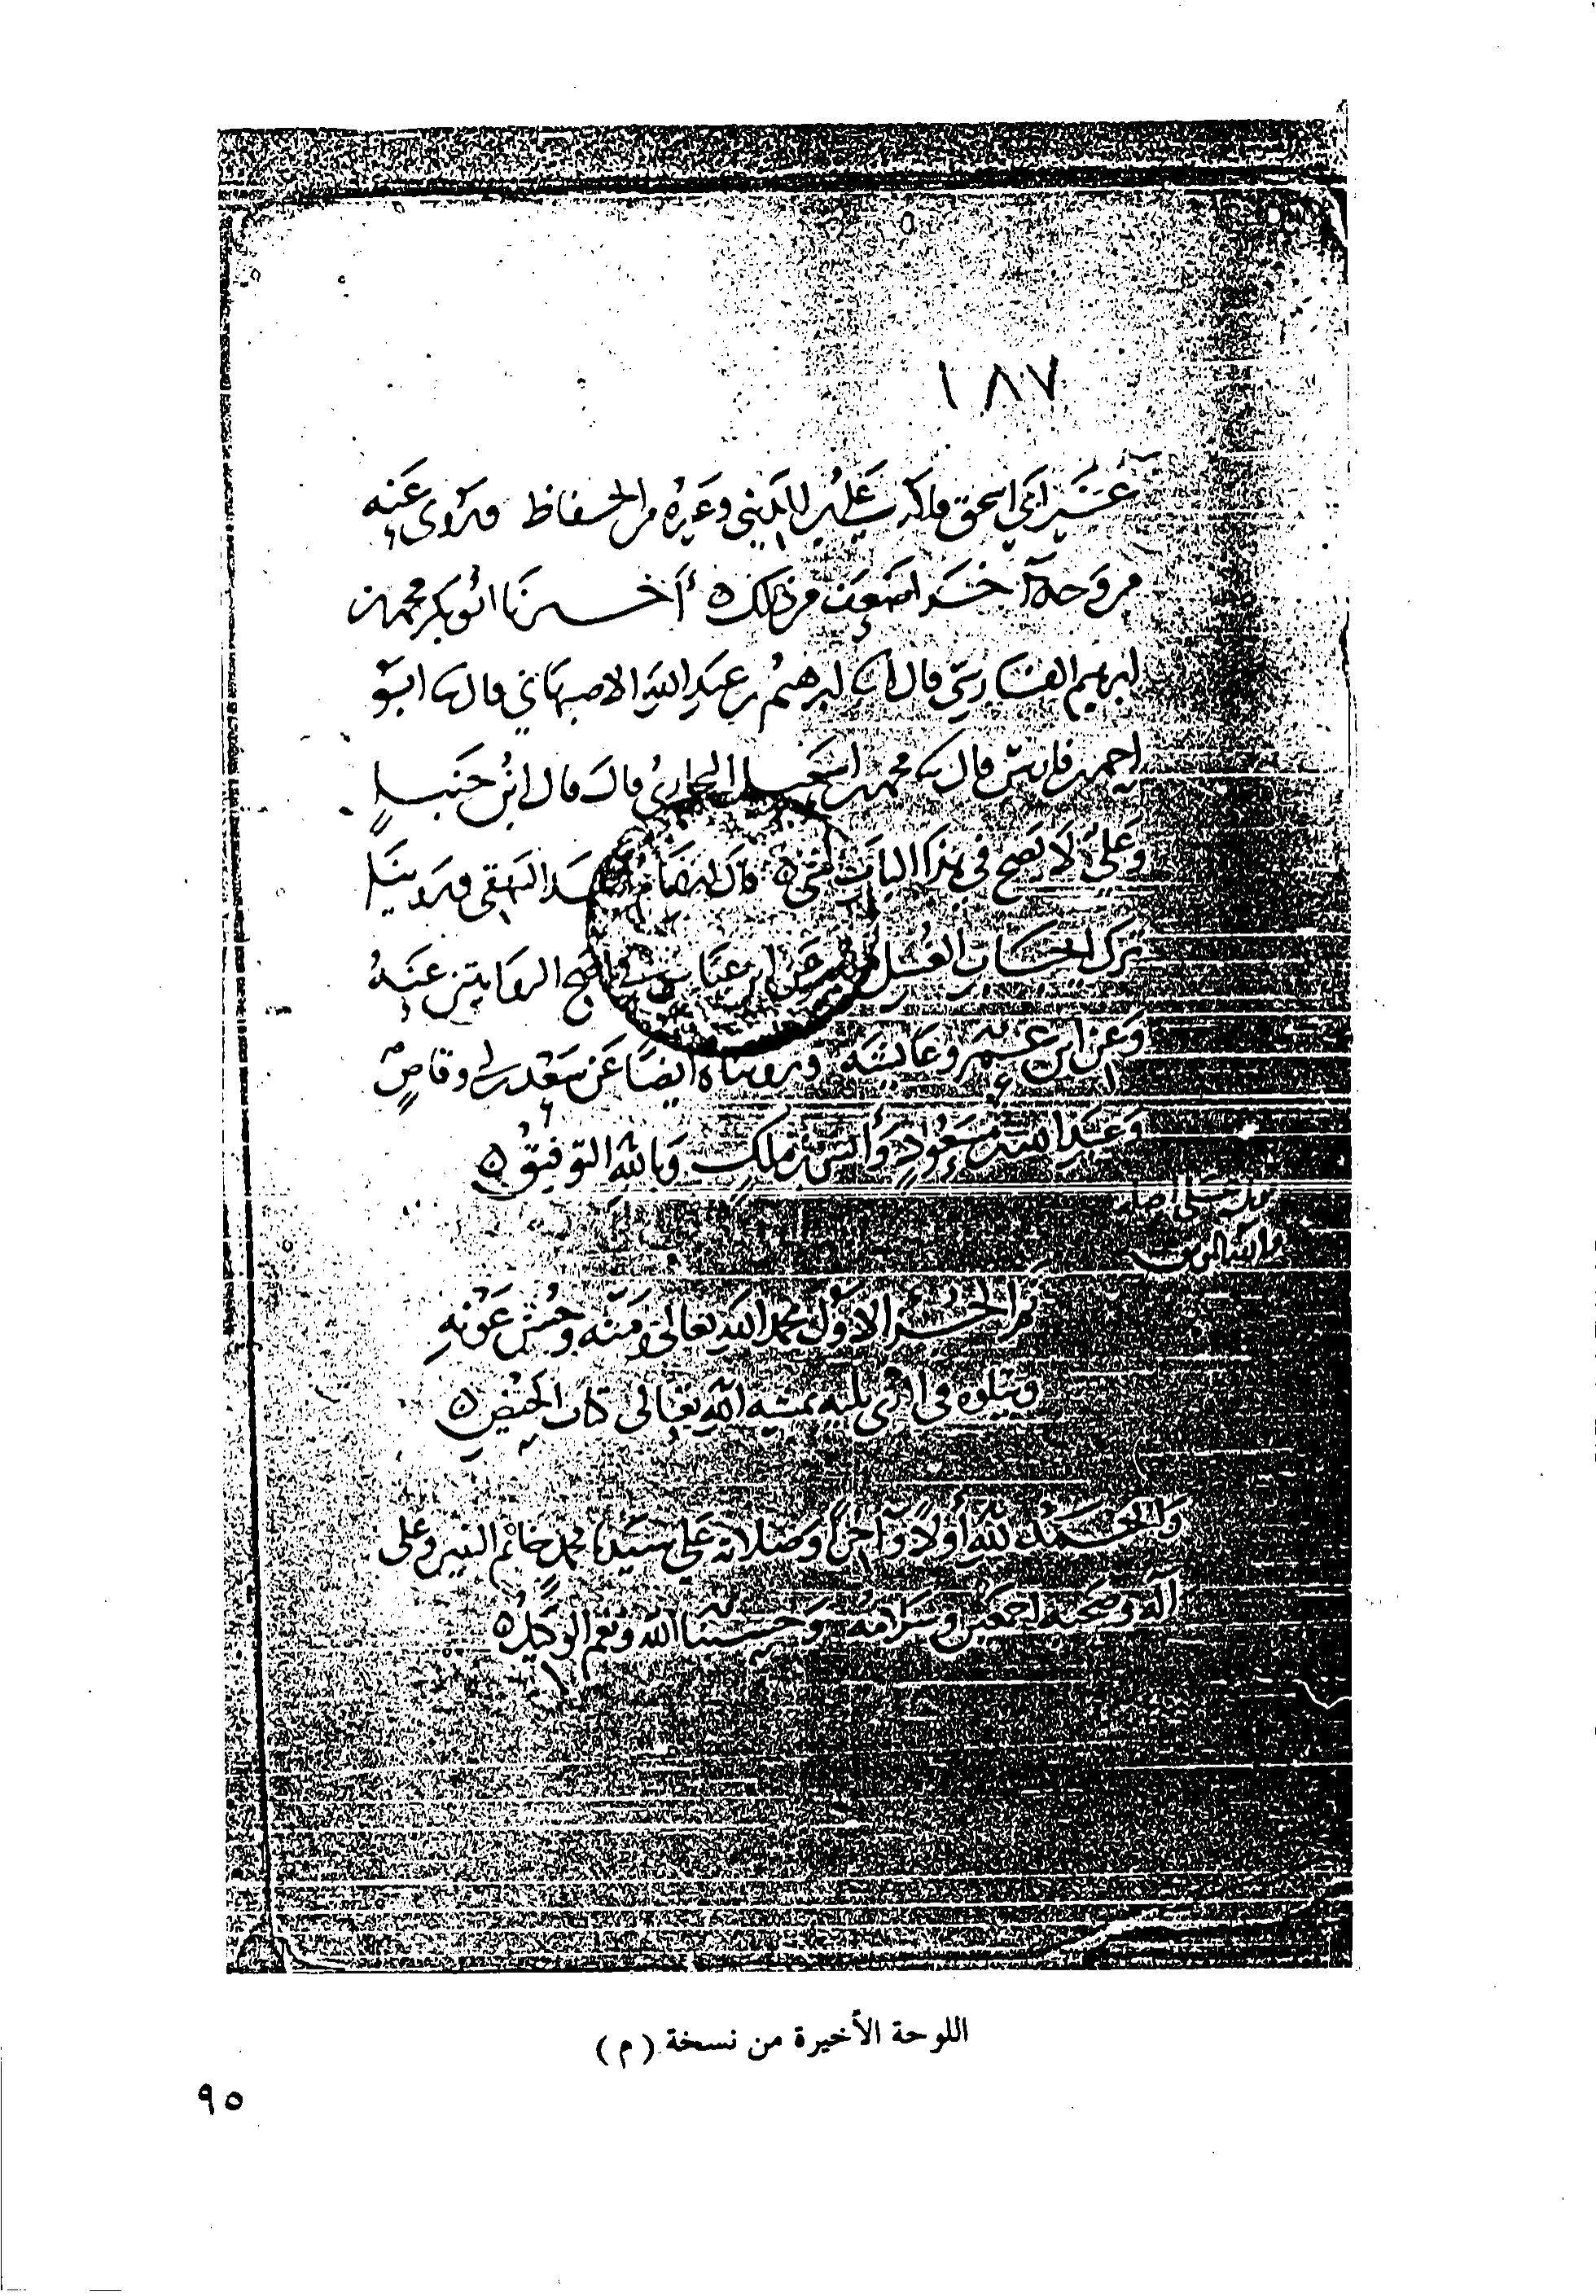 ١٨٧
عن أبي اسحق ما كذب علي بن المديني وغيره من الحفاظ وروي عنه
من وجه آخر اضعف من ذلك ه أخبرنا ابو بكر محمد بن
ابرهيم الفارسي قال ابرهيم بن عبد الله الاصبهاني قال ابو
احمد بن فارس قال محمد بن اسمعيل البخاري قال قال ابن حنبل
وعلي لا يصح في هذا الباب شي ه قال البيهقي وروينا
ترك ايجاب الغسل عن ابن عباس في اصح الروايتين عنه
وعن ابن عمر وعايشه ورويناه ايضا عن سعد بن ابي وقاص
وعبد الله بن مسعود وأنس بن ملك وبالله التوفيق ه
بلغ
تم الجزء الاول بحمد الله تعالى ومنه وحسن عونه
ويتلوه في الذي يليه بمشيه الله تعالى كتاب الحيض ه
والحمد لله أولا وآخرا وصلاته على سيدنا محمد خاتم النبيين وعلى
آله وصحبه اجمعين وسلامه وحسبنا الله ونعم الوكيل ه
اللوحة الأخيرة من نسخة (م)
٩٥